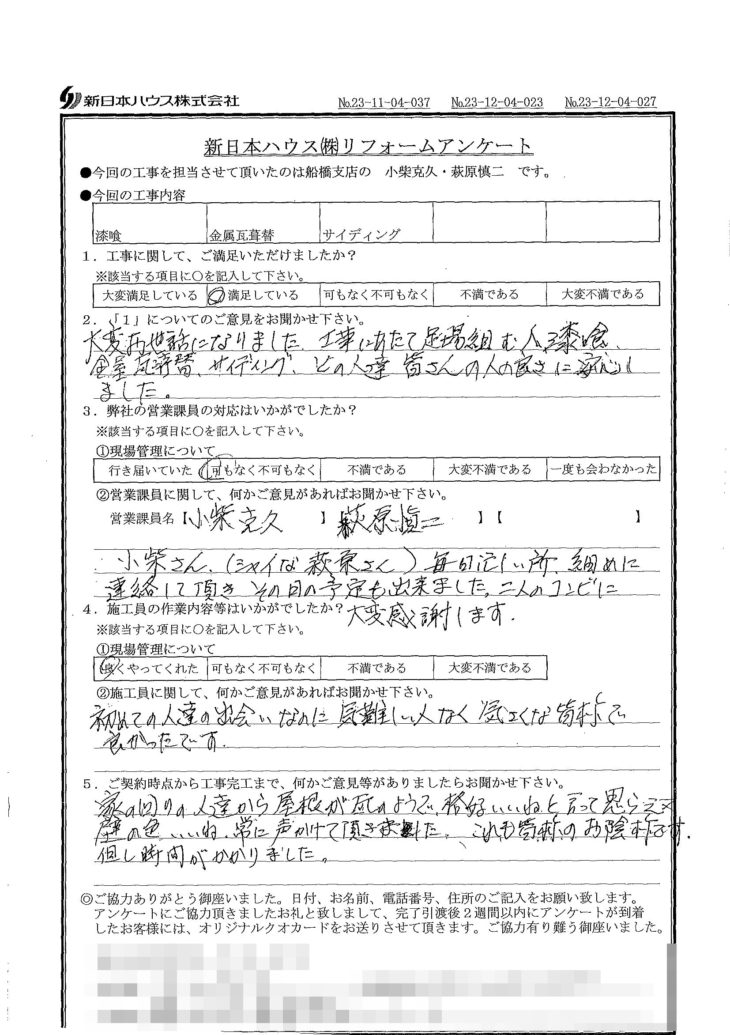 新日本ハウス株式会社 №23-11-04-037 №23-12-04-023 №23-12-04-027
新日本ハウス㈱リフォームアンケート
●今回の工事を担当させて頂いたのは船橋支店の 小柴克久・萩原慎二 です。
●今回の工事内容
漆喰 金属瓦葺替 サイディング
1．工事に関して、ご満足いただけましたか？
※該当する項目に○を記入して下さい。
大変満足している ○満足している 可もなく不可もなく 不満である 大変不満である
2．「1」についてのご意見をお聞かせ下さい。
大変お世話になりました。工事にあたて足場組む人、漆喰、
金属瓦葺替、サイディング、どの人達 皆さんの人の良さに
ました。
3．弊社の営業課員の対応はいかがでしたか？
※該当する項目に○を記入して下さい。
①現場管理について
行き届いていた 可もなく不可もなく 不満である 大変不満である 一度も会わなかった
②営業課員に関して、何かご意見があればお聞かせ下さい。
営業課員名【小柴克久 】 萩原慎二 】【 】
小柴さん、(シャイな萩原さん)毎日忙しい所、細めに
連絡して頂き その日の予定も出来ました。二人のコンビに
4．施工員の作業内容等はいかがでしたか？ 大変感謝します。
※該当する項目に○を記入して下さい。
①現場管理について
良くやってくれた 可もなく不可もなく 不満である 大変不満である
②施工員に関して、何かご意見があればお聞かせ下さい。
初めての人達の出会いなのに 気難しい人なく 気さくな皆様で
良かったです。
5．ご契約時点から工事完工まで、何かご意見等がありましたらお聞かせ下さい。
家の回りの人達から屋根が瓦のようで、格好いいねと言って
壁の色いいね、常に声かけて頂き ました。これも皆様のお陰様です。
但し時間がかかりました。
◎ご協力ありがとう御座いました。日付、お名前、電話番号、住所のご記入をお願い致します。
アンケートにご協力頂きましたお礼と致しまして、完了引渡後2週間以内にアンケートが到着
したお客様には、オリジナルクオカードをお送りさせて頂きます。ご協力有り難う御座いました。